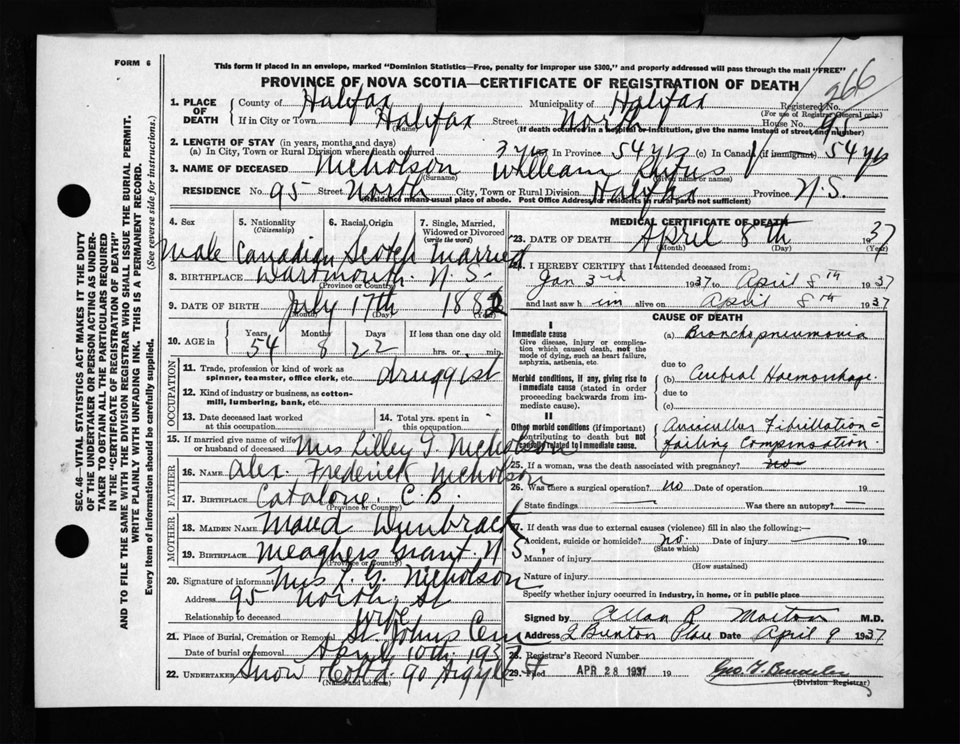 FORM 6
266
This form if placed in an envelope, marked "Dominion Statistics—Free, penalty for improper use $300," and properly addressed will pass through the mail "FREE"
PROVINCE OF NOVA SCOTIA—CERTIFICATE OF REGISTRATION OF DEATH
1. PLACE OF DEATH { County of Halifax Municipality of Halifax Registered No.
(For use of Registrar General only.)
If in City or Town Halifax Street North House No. 95
(Name) (If death occurred in a hospital or institution, give the name instead of street and number)
2. LENGTH OF STAY (in years, months and days)
(a) In City, Town or Rural Division where death occurred 3 yrs In Province 54 yrs (c) In Canada (if immigrant) — 54 yrs
3. NAME OF DECEASED Nicholson William Rufus
(Surname) (Given name or names)
RESIDENCE No. 95 Street North City, Town or Rural Division Halifax Province N.S.
(Residence means usual place of abode. Post Office Address for residents in rural parts not sufficient)
4. Sex 5. Nationality (Citizenship) 6. Racial Origin 7. Single, Married, Widowed or Divorced (write the word)
Male Canadian Scotch Married
8. BIRTHPLACE Dartmouth N.S.
(Province or Country)
9. DATE OF BIRTH July 17th 1882
(Month) (Day) (Year)
10. AGE in { Years Months Days If less than one day old
54 8 22 hrs. or min.
OCCUPATION
11. Trade, profession or kind of work as spinner, teamster, office clerk, etc. druggist
12. Kind of industry or business, as cotton-mill, lumbering, bank, etc.
13. Date deceased last worked at this occupation 14. Total yrs. spent in this occupation
15. If married give name of wife or husband of deceased Mrs Lilley G. Nicholson
FATHER
16. NAME Alex. Frederick Nicholson
17. BIRTHPLACE Catalone. C.B.
(Province or Country)
MOTHER
18. MAIDEN NAME Maud Dunbrack
19. BIRTHPLACE Meaghers Grant. N.S.
(Province or Country)
20. Signature of informant Mrs L. G. Nicholson
Address 95 North St
Relationship to deceased wife
21. Place of Burial, Cremation or Removal St. Johns Cem
Date of burial or removal April 10th 1937
22. UNDERTAKER Snow & Co Ltd. 90 Argyle St
(Name and address)
MEDICAL CERTIFICATE OF DEATH
23. DATE OF DEATH April 8th 1937
(Month) (Day) (Year)
24. I HEREBY CERTIFY that I attended deceased from:
Jan 3rd 1937 to April 8th 1937
and last saw him alive on April 8th 1937
CAUSE OF DEATH
I
Immediate cause
Give disease, injury or complication which caused death, not the mode of dying, such as heart failure, asphyxia, asthenia, etc.
(a) Bronchopneumonia
due to
Morbid conditions, if any, giving rise to immediate cause (stated in order proceeding backwards from immediate cause).
(b) Cerebral Haemorrhage
due to
(c)
II
Other morbid conditions (if important) contributing to death but not causally related to immediate cause.
Auricular Fibrillation c̄
failing Compensation
25. If a woman, was the death associated with pregnancy? no
26. Was there a surgical operation? no Date of operation 19
State findings Was there an autopsy? —
27. If death was due to external causes (violence) fill in also the following:—
Accident, suicide or homicide? no. Date of injury — 19
(State which)
Manner of injury
(How sustained)
Nature of injury
Specify whether injury occurred in industry, in home, or in public place
Signed by Allan R Morton M.D.
Address 2 Brenton Place Date April 9 1937
28. Registrar's Record Number
29. Filed APR 28 1937 19
(Division Registrar)
SEC. 46—VITAL STATISTICS ACT MAKES IT THE DUTY
OF THE UNDERTAKER OR PERSON ACTING AS UNDER-
TAKER TO OBTAIN ALL THE PARTICULARS REQUIRED
IN THE "CERTIFICATE OF REGISTRATION OF DEATH"
AND TO FILE THE SAME WITH THE DIVISION REGISTRAR WHO SHALL ISSUE THE BURIAL PERMIT.
WRITE PLAINLY WITH UNFADING INK. THIS IS A PERMANENT RECORD.
Every item of information should be carefully supplied. (See reverse side for instructions.)